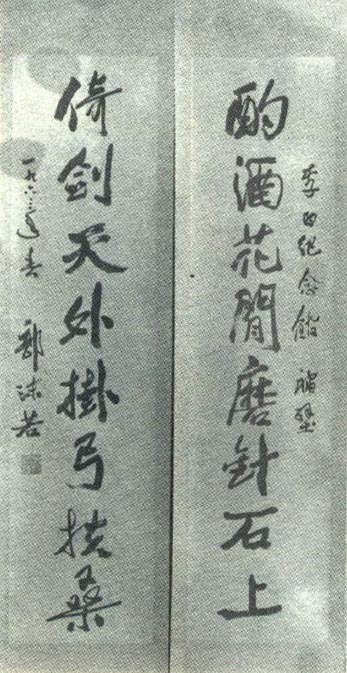 李白纪念館 補壁
酌酒花閒磨針石上
倚劍天外掛弓扶桑
一九六三年春 郭沫若